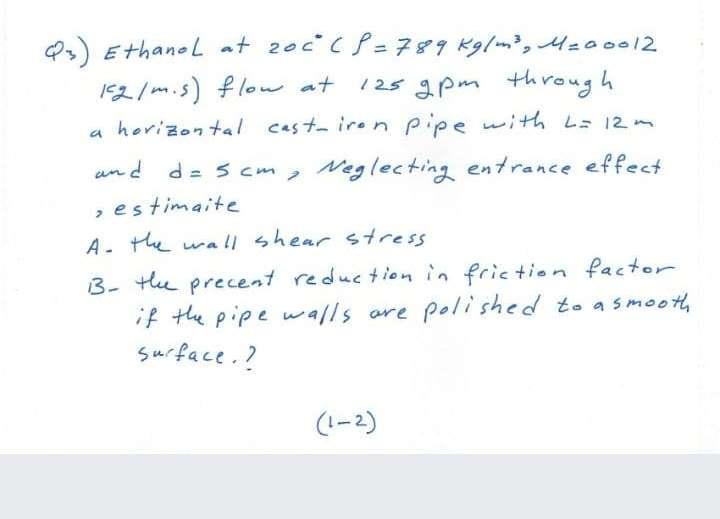 Q3) EthanoL at 20c° ( ρ = 789 Kg/m³, μ=0.0012
Kg/m.s) flow at 125 gpm through
a horizontal cast-iron pipe with L= 12 m
and d = 5 cm, Neglecting entrance effect
, estimaite
A- the wall shear stress
B- the precent reduction in friction factor
if the pipe walls are polished to a smooth
surface.?
(1-2)